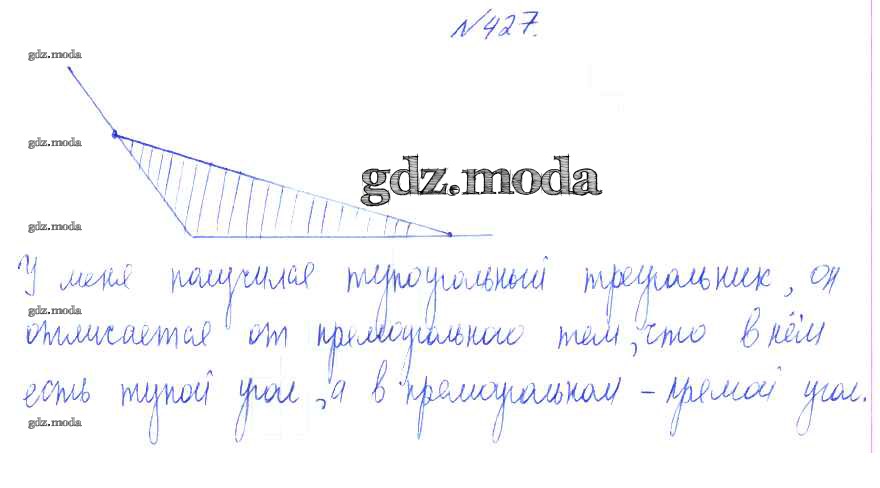 №427.
gdz.moda
gdz.moda
gdz.moda
gdz.moda
У меня получился тупоугольный треугольник, он
gdz.moda
отличается от прямоугольного тем, что в нём
есть тупой угол, а в прямоугольном - прямой угол.
gdz.moda